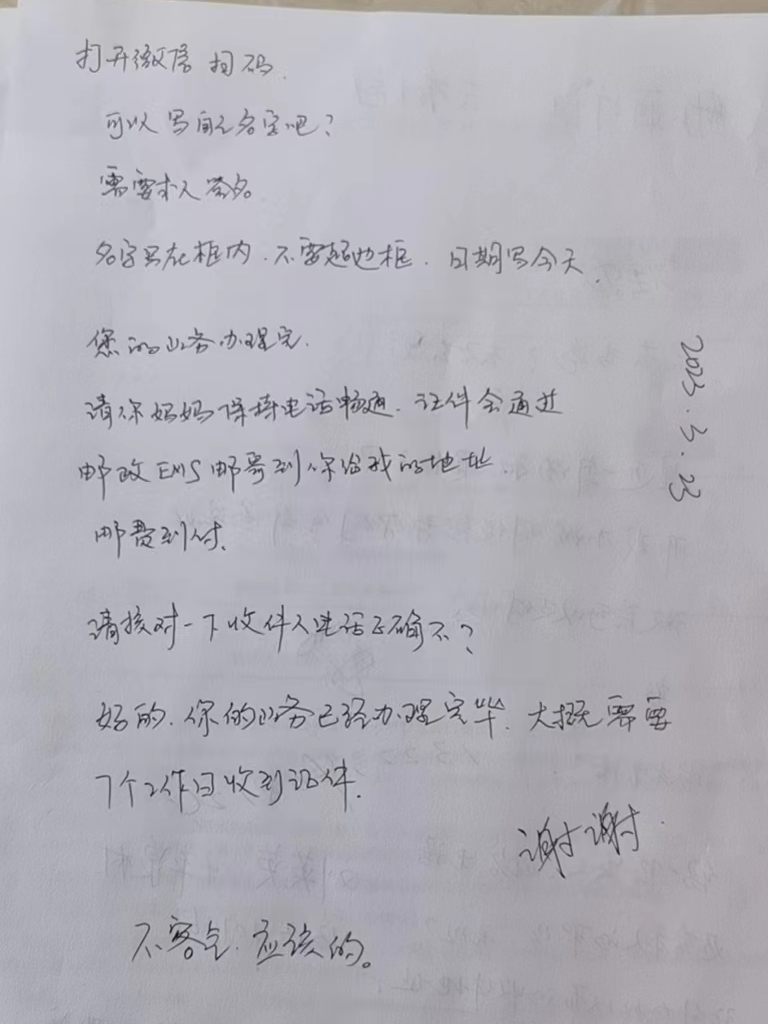 打开微信 扫码.
可以写自己名字吧?
需要本人签名
名字写在框内.不要超边框.日期写今天.
您的业务办理完.
请你妈妈保持电话畅通.证件会通过
邮政EMS邮寄到你给我的地址
邮费到付.
请核对一下收件人电话正确不?
好的.你的业务已经办理完毕.大概需要
7个工作日收到证件.
谢谢.
不客气.应该的。
2023.3.23